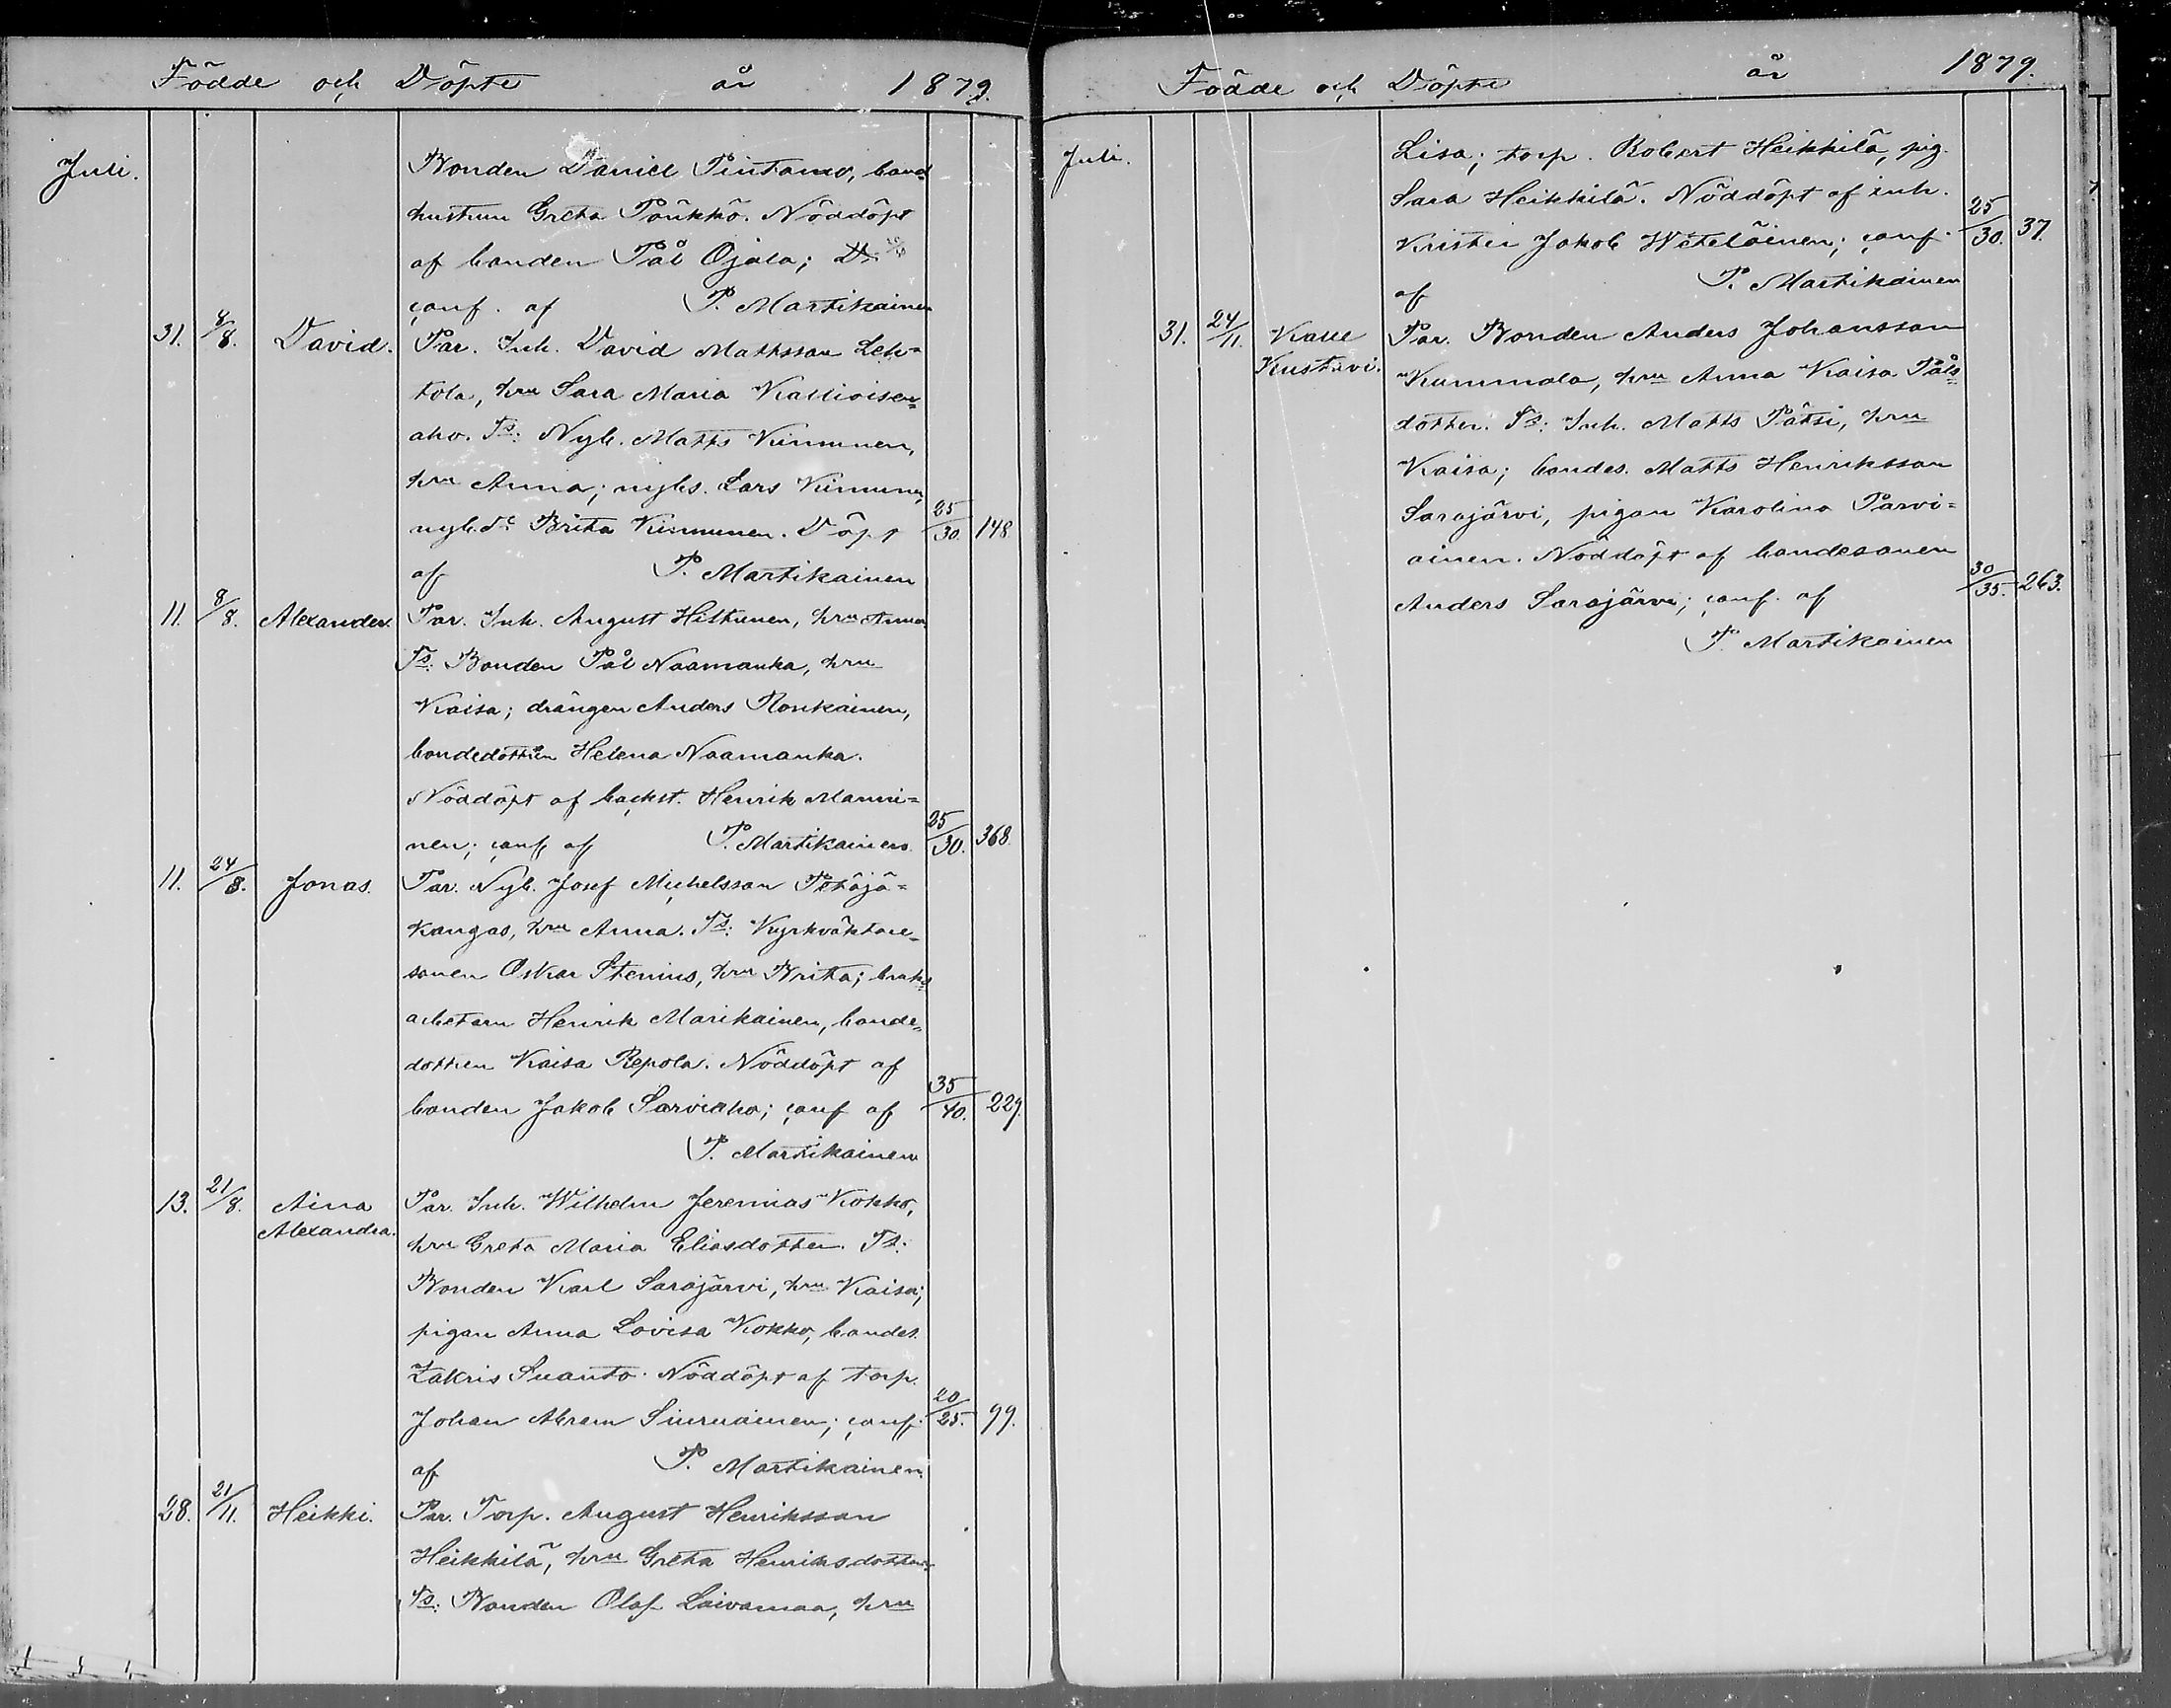 Födde och Döpte år 1879.
Juli.
Bonden Daniel Pintamo, bond
hustrun Greta Pöükkö. Nöddöpt
af bonden Pål Ojala;
conf. af P. Martikainen
31. 8/8. David. Par. Inh. David Mattsson Leh-
tola, hru Sara Maria Kallioisen-
aho. Ts: Nyb. Matts Kinnunen,
hru Anna; nybs. Lars Kinnunen,
nyb.dr Brita Kinnunen. Döpt 25/30. 148.
af P. Martikainen
11. 8/8. Alexander. Par. Inh. August Hiltunen, hru Anna
Ts: Bonden Pål Naamanka, hru
Kaisa; drängen Anders Ronkainen,
bondedottren Helena Naamanka.
Nöddöpt af backst. Henrik Manni-
nen; conf af P. Martikainen. 25/30. 368.
11. 24/8. Jonas. Par. Nyb. Josef Michelsson Petäjä-
kangas, hru Anna. Ts: Kyrkväktare-
sonen Oskar Stenius, hru Brita; bruks
arbetarn Henrik Marikainen, bonde-
dottren Kaisa Repola. Nöddöpt af
bonden Jakob Sarviaho; conf af 35/40. 229.
P. Martikainen
13. 21/8. Aina Par. Inh. Wilhelm Jeremias Kokko,
Alexandra. hru Greta Maria Eliasdotter. Ts:
Bonden Karl Sarajärvi, hru Kaisa;
pigan Anna Lovisa Kokko, bondes.
Zakris Suanto. Nöddöpt af torp.
Johan Abram Siuruainen; conf. 20/25. 99.
af P. Martikainen.
28. 21/11. Heikki. Par. Torp. August Henriksson
Heikkilä, hru Greta Henriksdotter.
Ts: Bonden Olof Laivamaa, hru
Födde och Döpte år 1879.
Juli. Lisa; torp. Robert Heikkilä, pig.
Sara Heikkilä. Nöddöpt af inh.
Krister Jakob Weteläinen; conf. 25/30. 37.
af P. Martikainen
31. 24/11. Kalle Par. Bonden Anders Johansson
Kustavi. Kummala, hru Anna Kaisa Påls
dotter. Ts: Inh. Matts Pätsi, hru
Kaisa; bondes. Matts Henriksson
Sarajärvi, pigan Karolina Parvi=
ainen. Nöddöpt af bondesonen
Anders Sarajärvi; conf. af 30/35. 263.
P. Martikainen